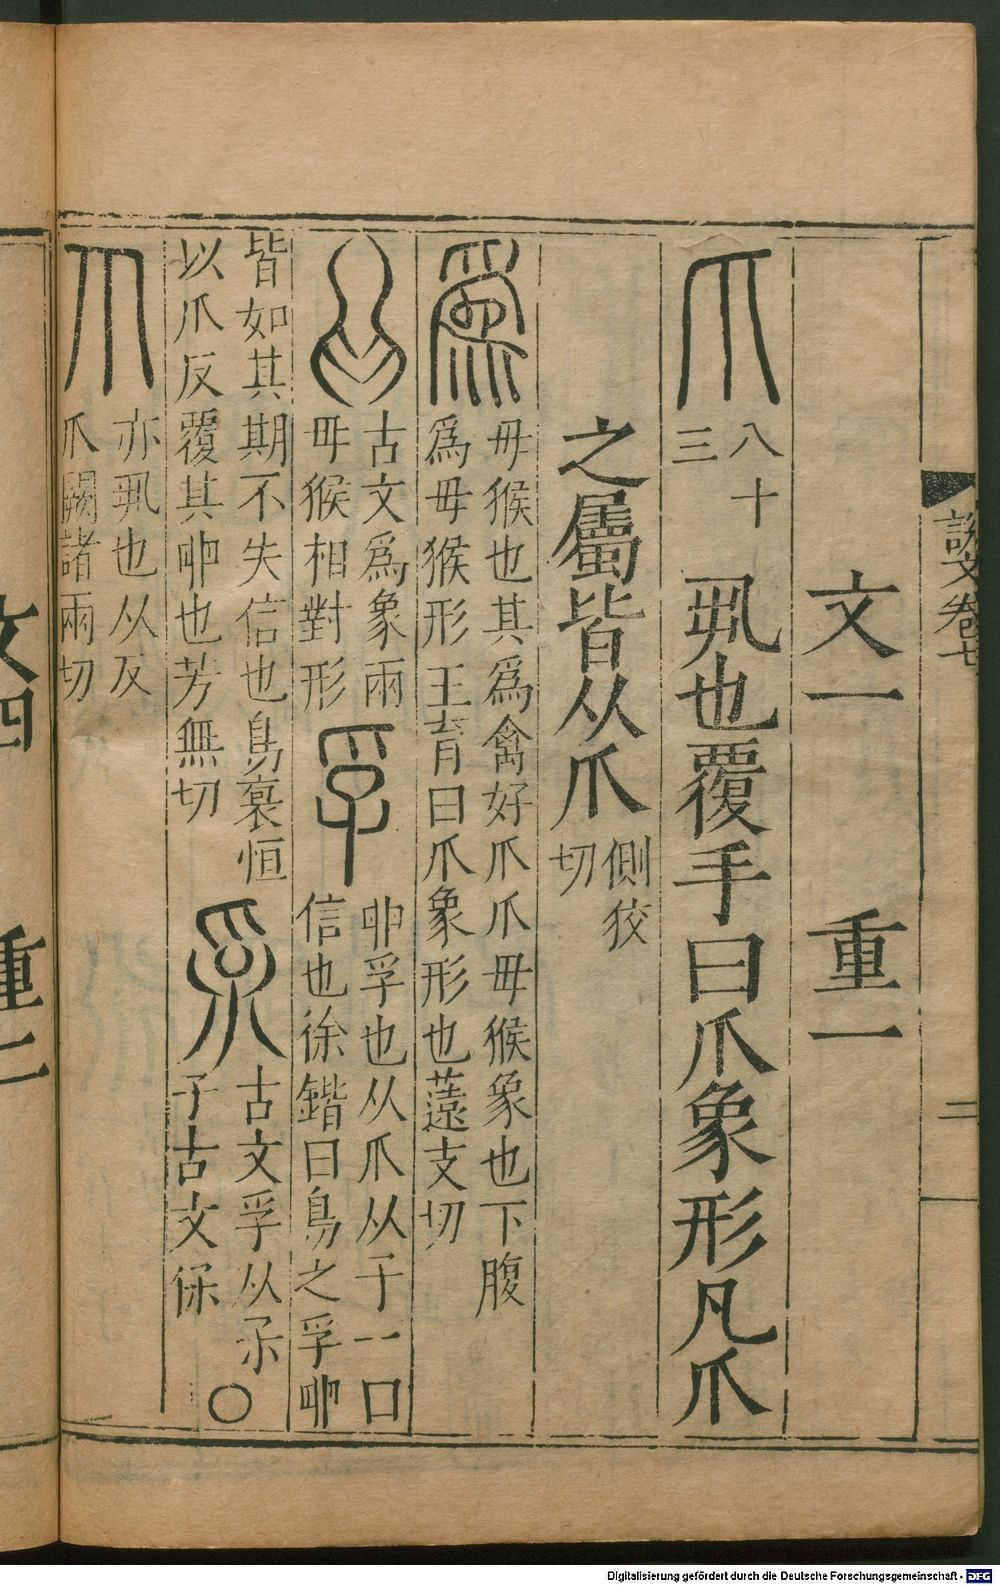 說文卷七
二
文一 重一
爪 八十三 丮也覆手曰爪象形凡爪
之屬皆从爪 側狡切
爲 毋猴也其爲禽好爪爪毋猴象也下腹
爲毋猴形王育曰爪象形也薳支切
古文爲象兩
毋猴相對形
孚 卵孚也从爪从子一曰
信也徐鍇曰鳥之孚卵
皆如其期不失信也鳥裒恒
以爪反覆其卵也芳無切
古文孚从𤓽
子古文保 〇
亦丮也从反
爪闕諸兩切
文四 重二
Digitalisierung gefördert durch die Deutsche Forschungsgemeinschaft - DFG